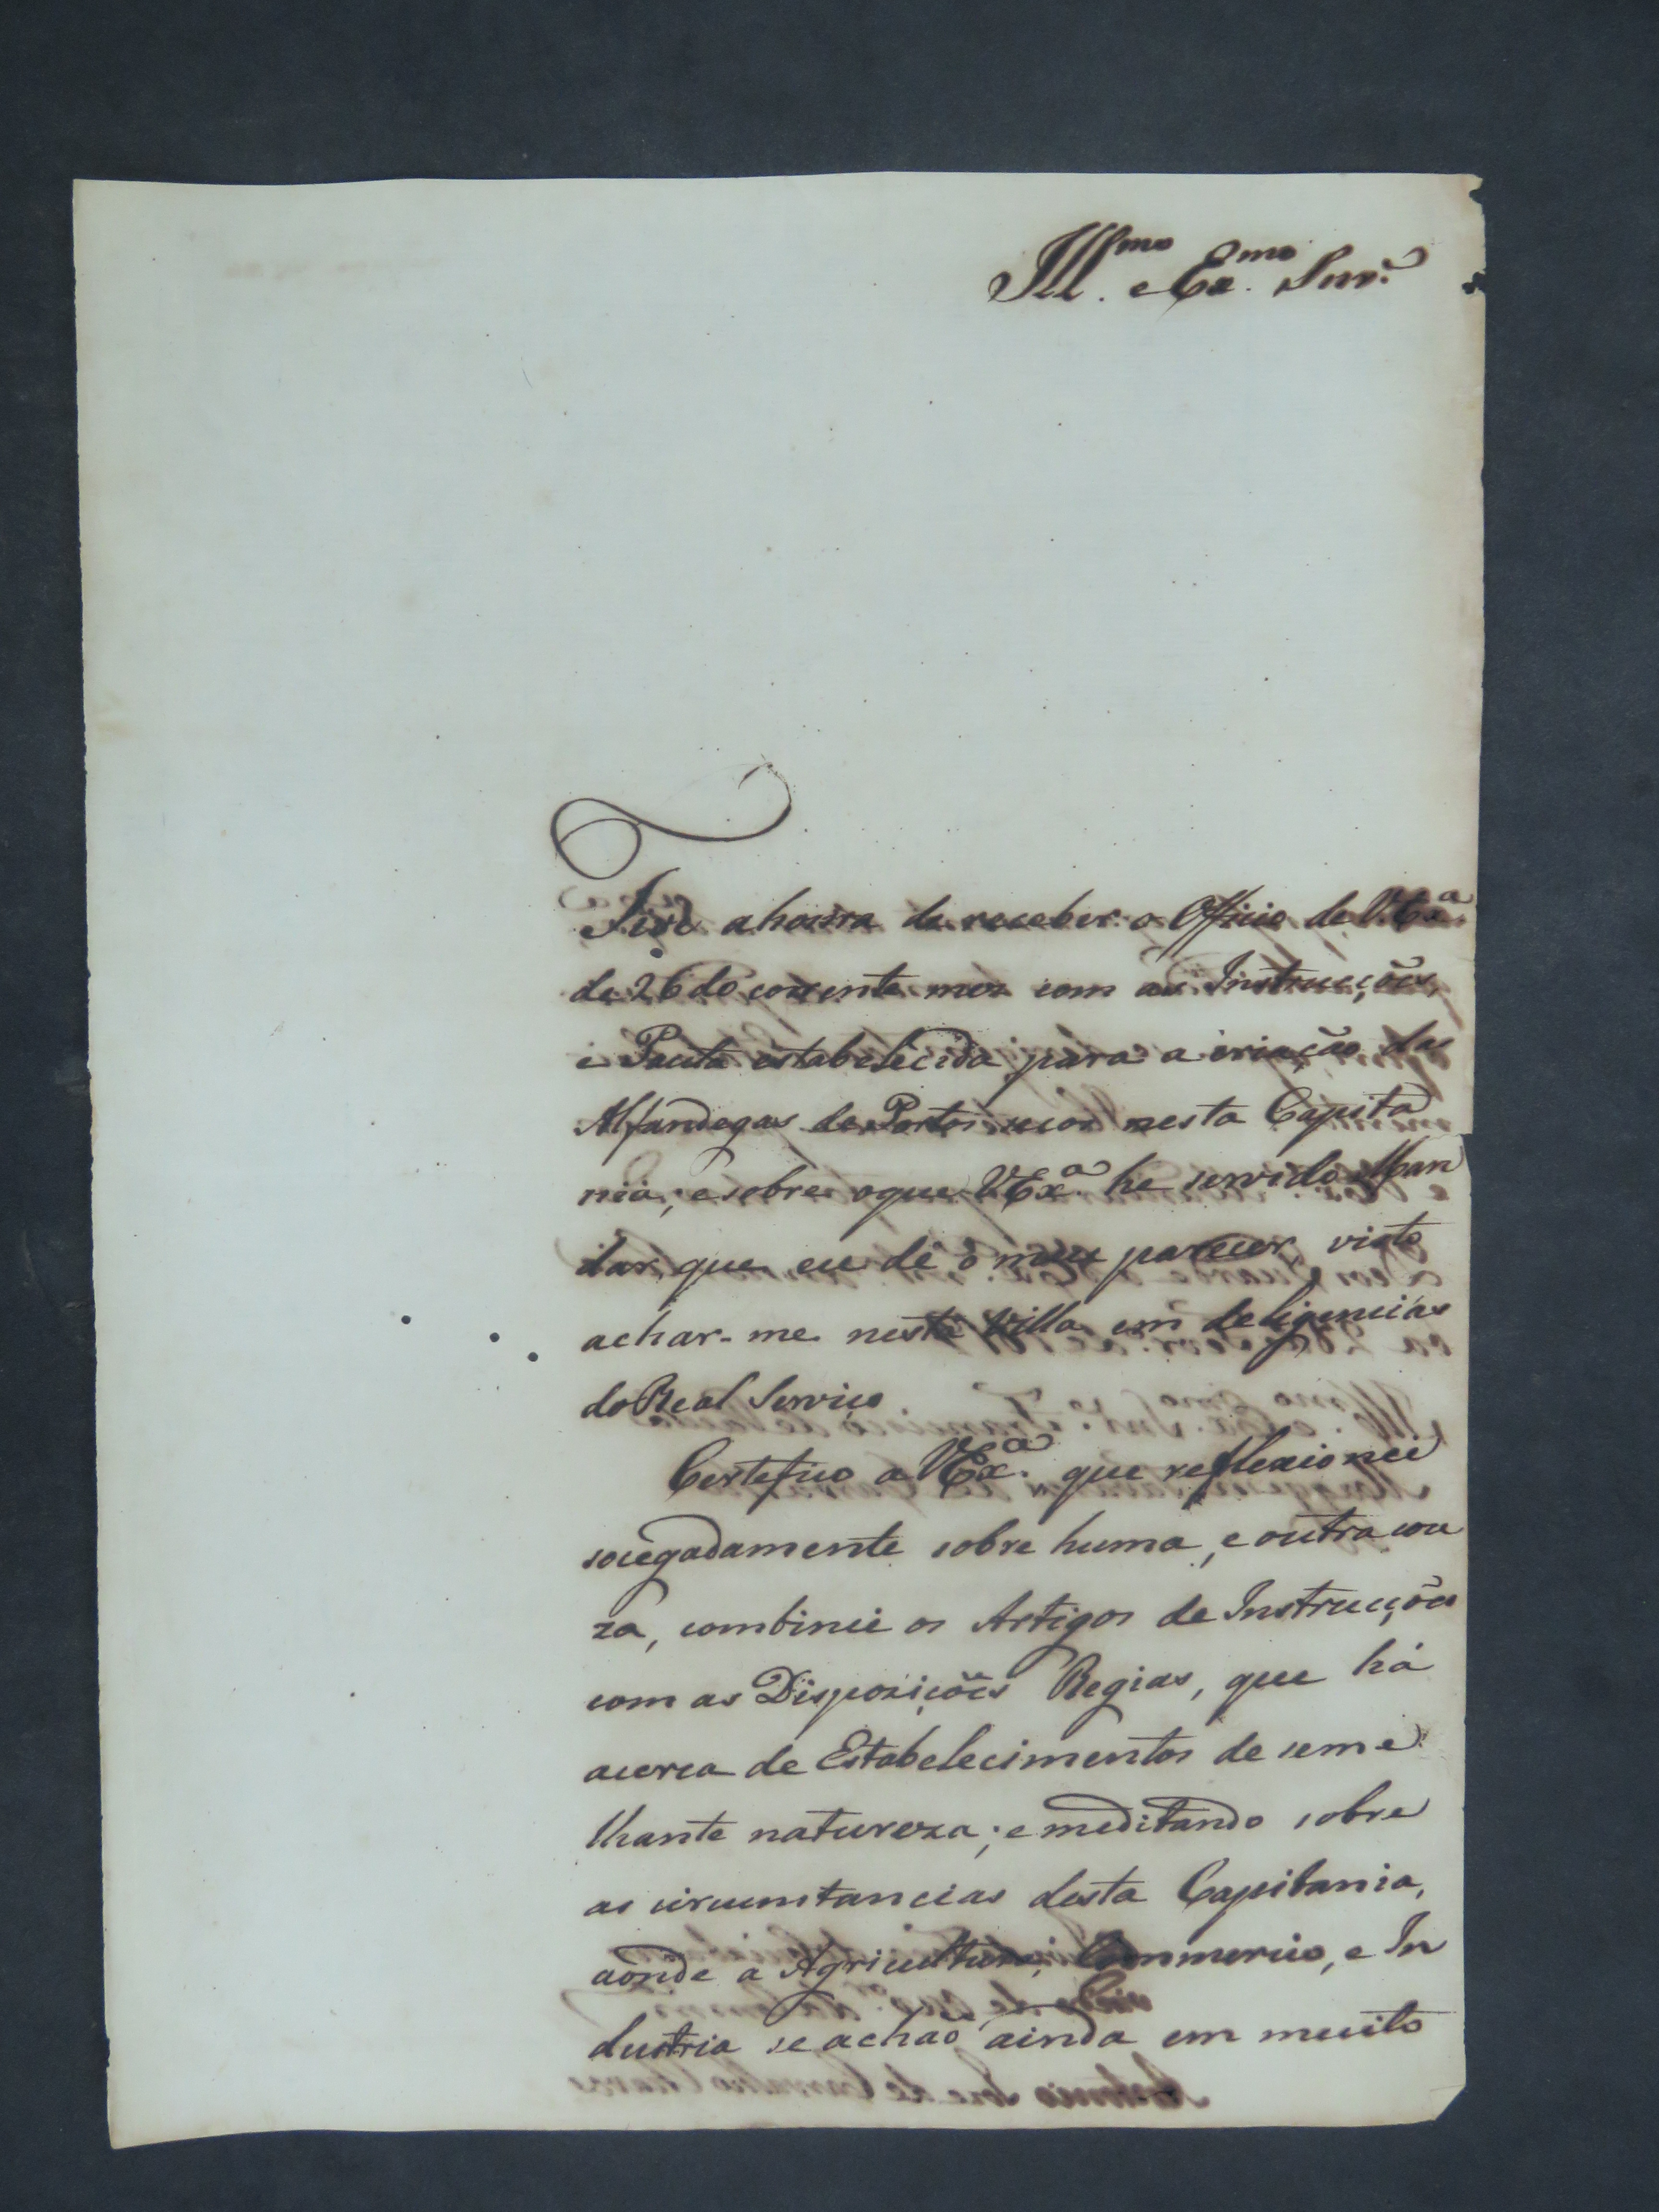 Ill.mo e Ex.mo Snr.
Tive a honra de receber o Officio de V.Ex.a
de 26 do corrente mez com as Instrucções,
e Pauta estabelecida para a criação das
Alfandegas de Portos secos nesta Capita
nia; e sobre o que V.Ex.a he servido Man
dar que eu dê o meu parecer, visto
achar-me nesta Villa em deligencias
do Real Serviço
Certefico a V.Ex.a que reflexionei
socegadamente sobre huma, e outra cou
za, combinei os Artigos de Instrucções
com as Dispozições Regias, que há
acerca de Estabelecimentos de seme
lhante natureza; e meditando sobre
as circumstancias desta Capitania,
aonde a Agricultura, Commercio, e In
dustria se achaõ ainda em muito